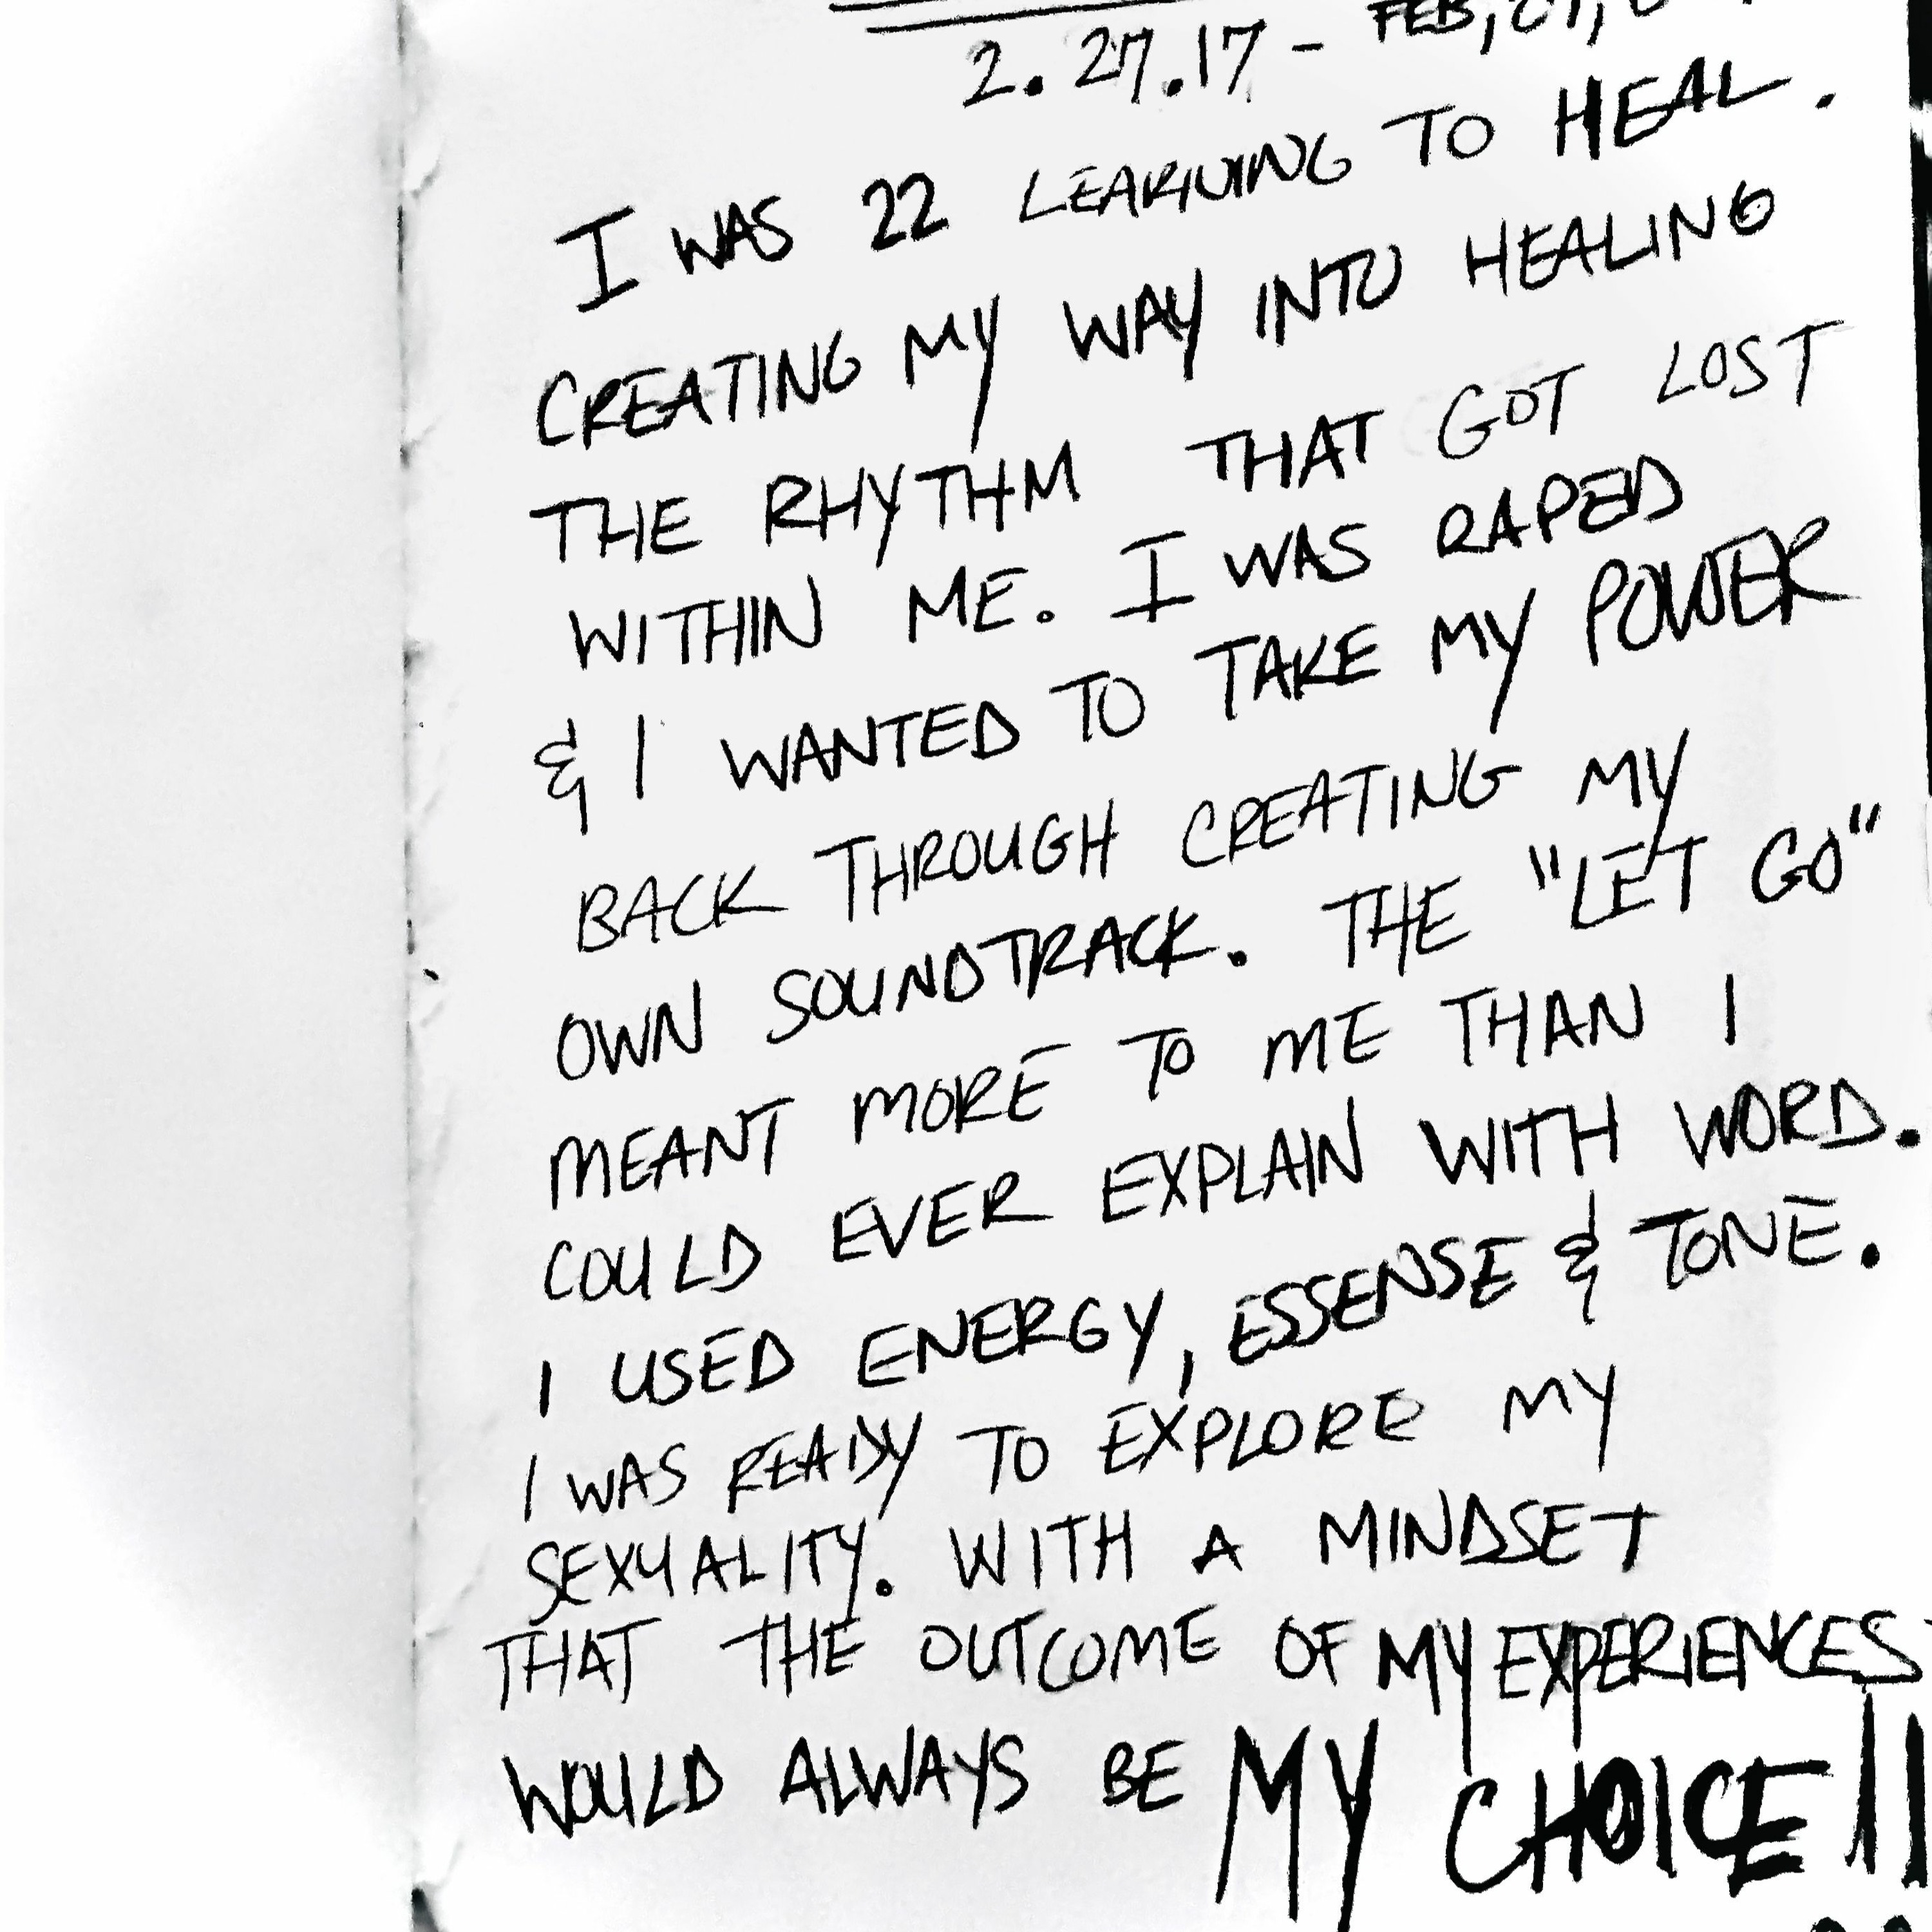 2.27.17 - FEB,
I WAS 22 LEARNING TO HEAL.
CREATING MY WAY INTO HEALING
THE RHYTHM THAT GOT LOST
WITHIN ME. I WAS RAPED
& I WANTED TO TAKE MY POWER
BACK THROUGH CREATING MY
OWN SOUNDTRACK. THE "LET GO"
MEANT MORE TO ME THAN I
COULD EVER EXPLAIN WITH WORD.
I USED ENERGY, ESSENSE & TONE.
I WAS READY TO EXPLORE MY
SEXUALITY. WITH A MINDSET
THAT THE OUTCOME OF MY EXPERIENCES
WOULD ALWAYS BE MY CHOICE!!